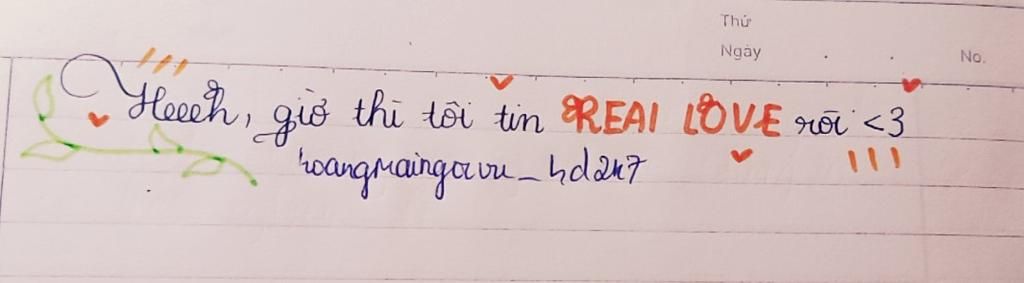 Thứ
Ngày . . No.
Heeeh, giờ thì tôi tin REAL LOVE rồi <3
hoangmaingavu_hd2k7